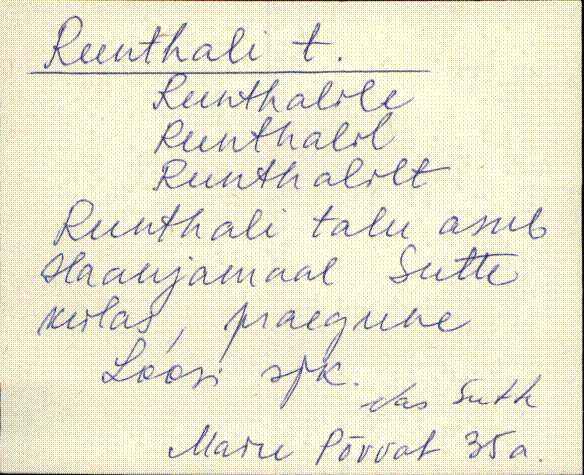 Runthali t.
Runthalile
Runthalil
Runthalilt
Runthali talu asub
Haanjamaal Sutte
külas, praegune
Loosi sjk.
Vas Sutt
Maire Põrvat 35 a.